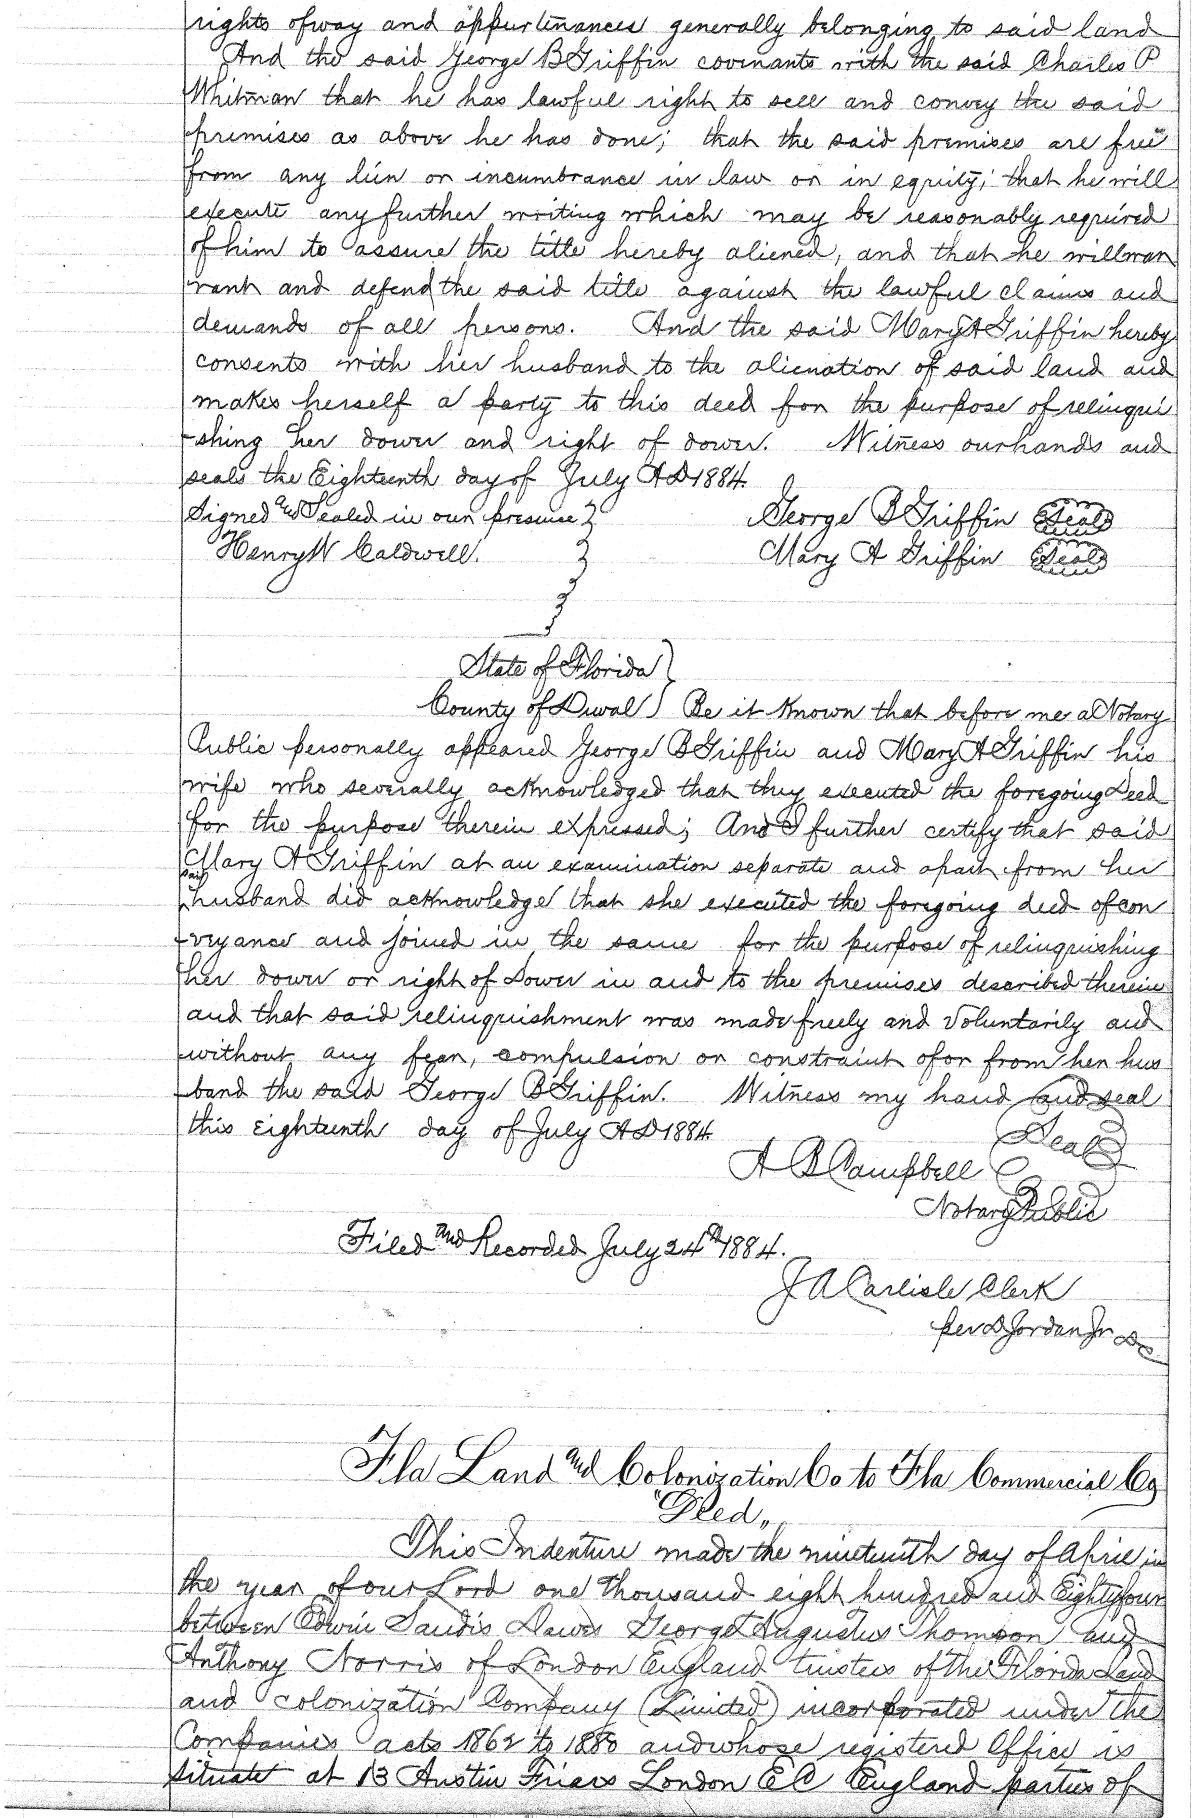 rights of way and appurtenances generally belonging to said land
And the said George B Griffin covinants with the said Charles P
Whitman that he has lawful right to sell and convey the said
premises as above he has done; that the said premises are free
from any lien or incumbrance in law or in equity; that he will
execute any further writing which may be reasonably required
of him to assure the title hereby aliened, and that he will war
rant and defend the said title against the lawful claims and
demands of all persons. And the said Mary A Griffin hereby
consents with her husband to the alienation of said land and
makes herself a party to this deed for the purpose of relinqui
-shing her dower and right of dower. Witness our hands and
seals the Eighteenth day of July AD 1884.
Signed and Sealed in our presence } George B Griffin (Seal)
Henry W Caldwell. } Mary A Griffin (Seal)
State of Florida }
County of Duval } Be it Known that before me a Notary
Public personally appeared George B Griffin and Mary A Griffin his
wife who severally acknowledged that they executed the foregoing Deed
for the purpose therein expressed; And I further certify that said
Mary A Griffin at an examination separate and apart from her
said husband did acknowledge that she executed the foregoing deed of con
-veyance and joined in the same for the purpose of relinquishing
her dower or right of Dower in and to the premises described therein
and that said relinquishment was made freely and Voluntarily and
without any fear, compulsion or constraint of or from her hus
-band the said George B Griffin. Witness my hand and seal
this Eighteenth day of July AD 1884.
(Seal)
A B Campbell
Notary Public
Filed and Recorded July 24th 1884.
J A Carlisle Clerk
per D Jordan Jr DC
Fla Land and Colonization Co to Fla Commercial Co
"Deed"
This Indenture made the nineteenth day of April in
the year of our Lord one thousand eight hundred and Eighty four
between Edwin Sandis Dawes George Augustus Thomson and
Anthony Norris of London England trustees of the Florida Land
and colonization Company (Limited) incorporated under the
Companies acts 1862 to 1880 and whose registered Office is
situate at 13 Austin Friars London E C England parties of